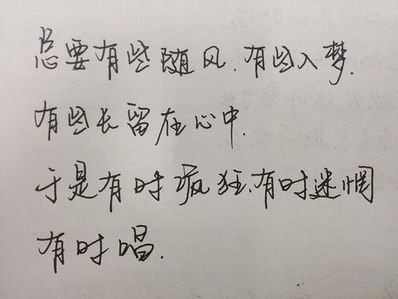 总要有些随风.有些入梦.
有些长留在心中.
于是有时疯狂.有时迷惘
有时唱.